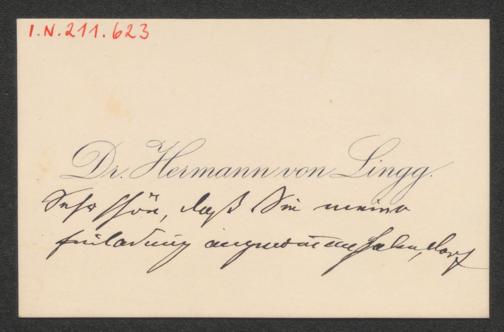 I.N.211.623
Dr. Hermann von Lingg.
Sehr schön, daß Sie meine
Einladung angenommen haben, darf